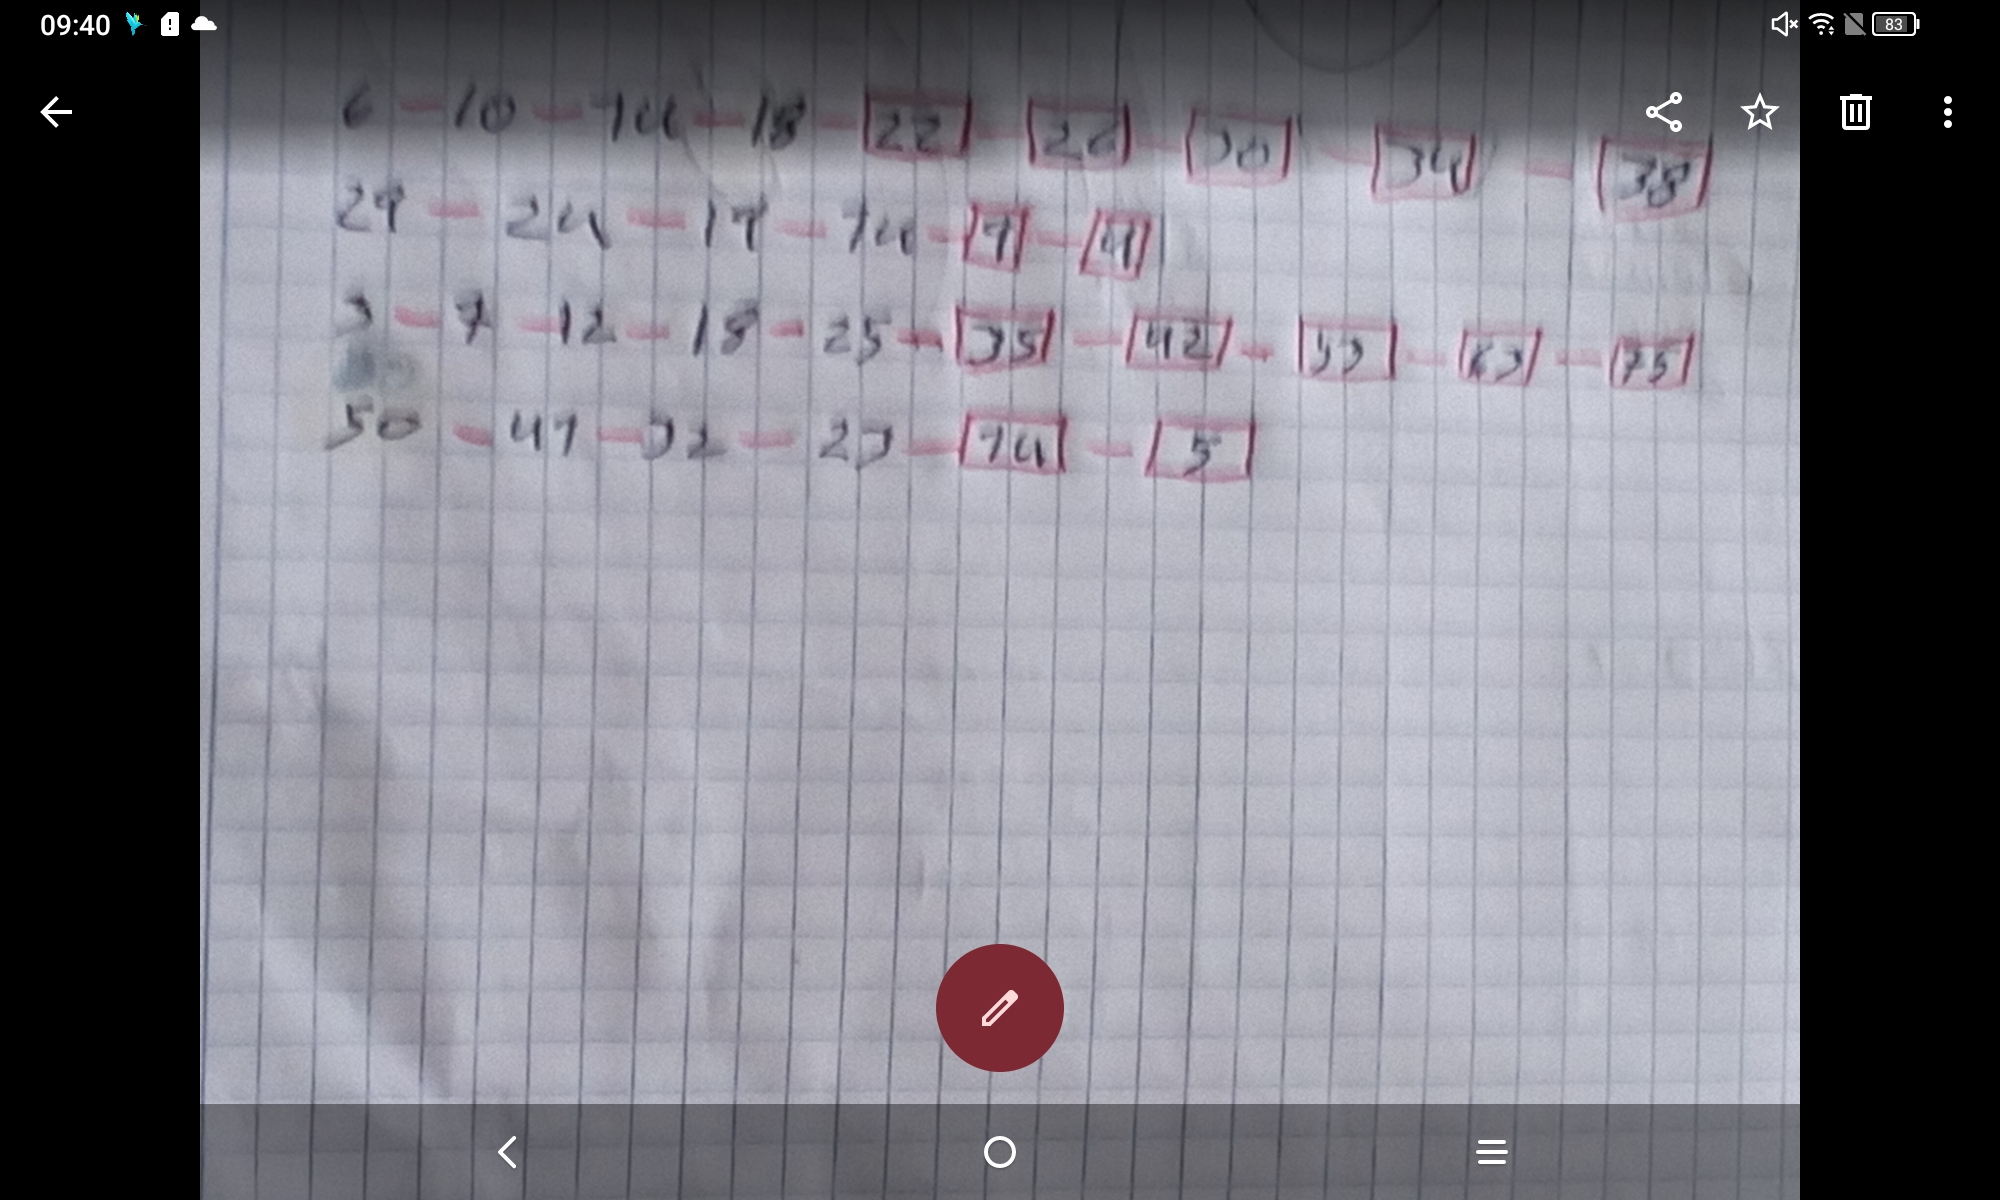 09:40 83
6 - 10 - 14 - 18 - 22 - 26 - 30 - 34 - 38
29 - 24 - 19 - 14 - 9 - 4
3 - 7 - 12 - 18 - 25 - 35 - 42 - 53 - 63 - 75
50 - 41 - 32 - 23 - 14 - 5